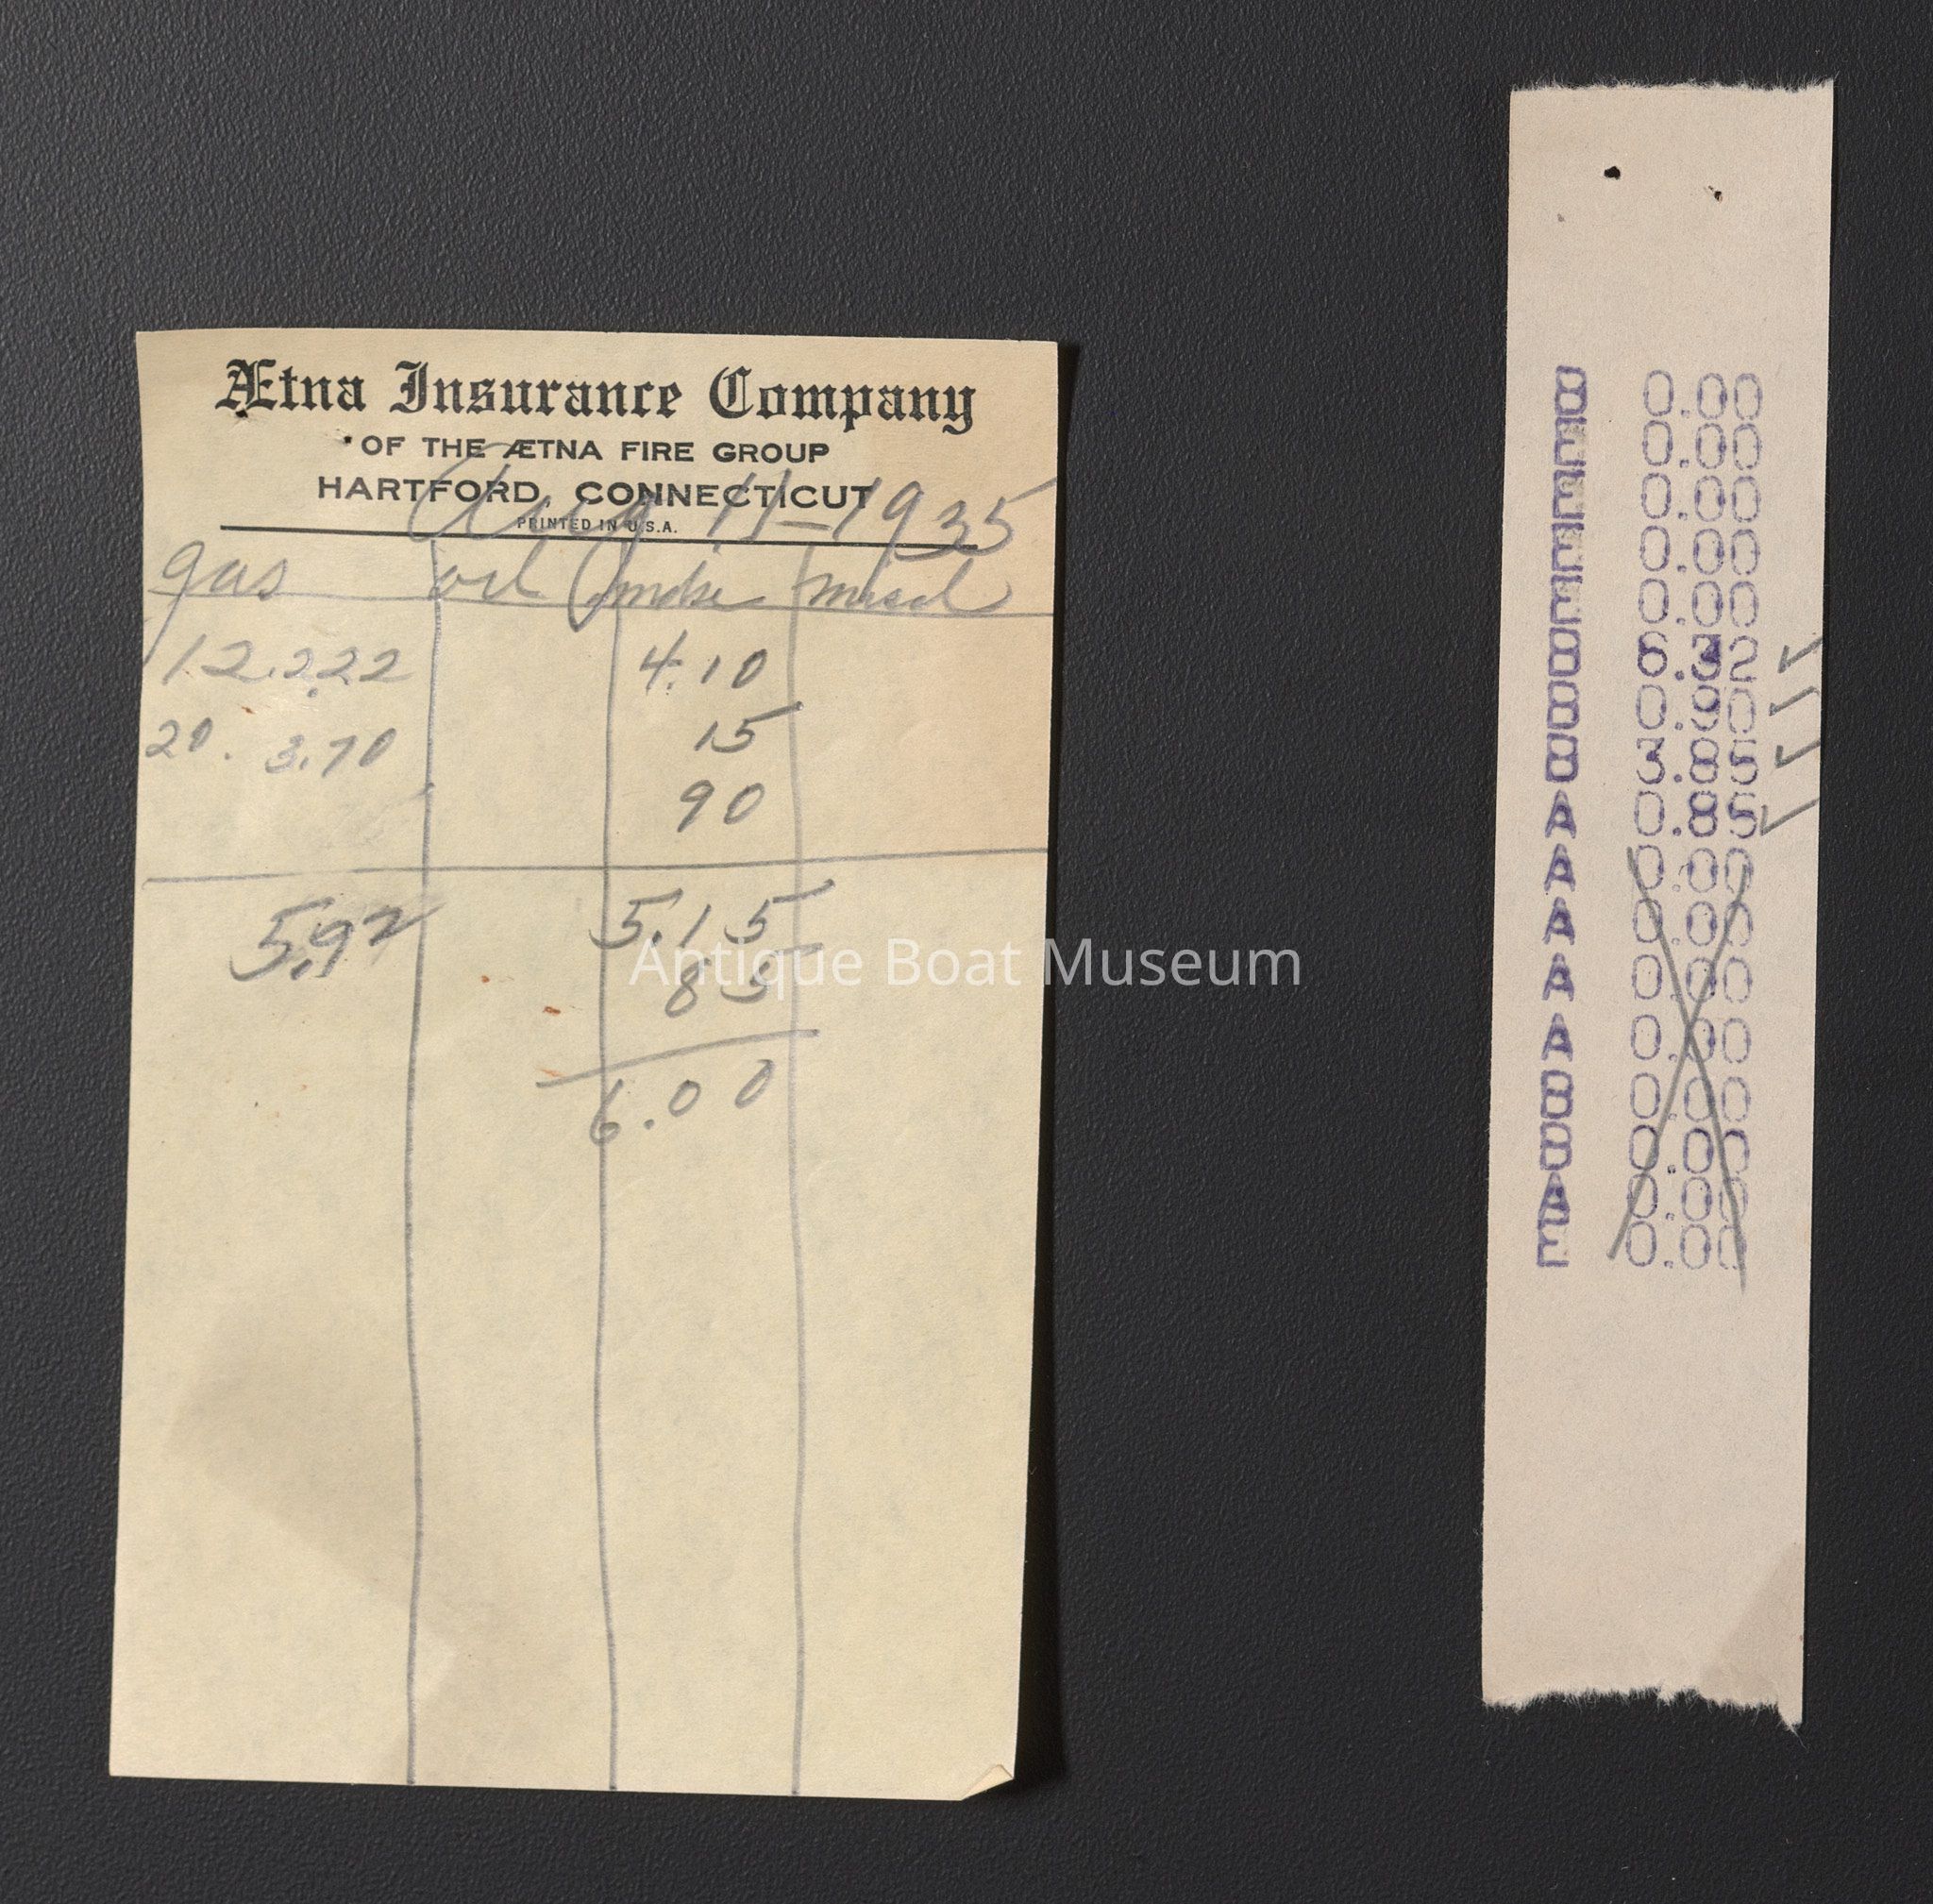 Ætna Insurance Company
OF THE ÆTNA FIRE GROUP
HARTFORD, CONNECTICUT
PRINTED IN U.S.A.
Aug 11-1935
gas oil Smoke miscl
12. 2.22 4.10
20. 3.70 15
90
5.92 5.15
85
6.00
Antique Boat Museum
B 0.00
E 0.00
E 0.00
E 0.00
E 0.00
B 6.32 ✓
B 0.90 ✓
B 3.85 ✓
A 0.85 ✓
A 0.00
A 0.00
A 0.00
A 0.00
B 0.00
B 0.00
A 0.00
E 0.00